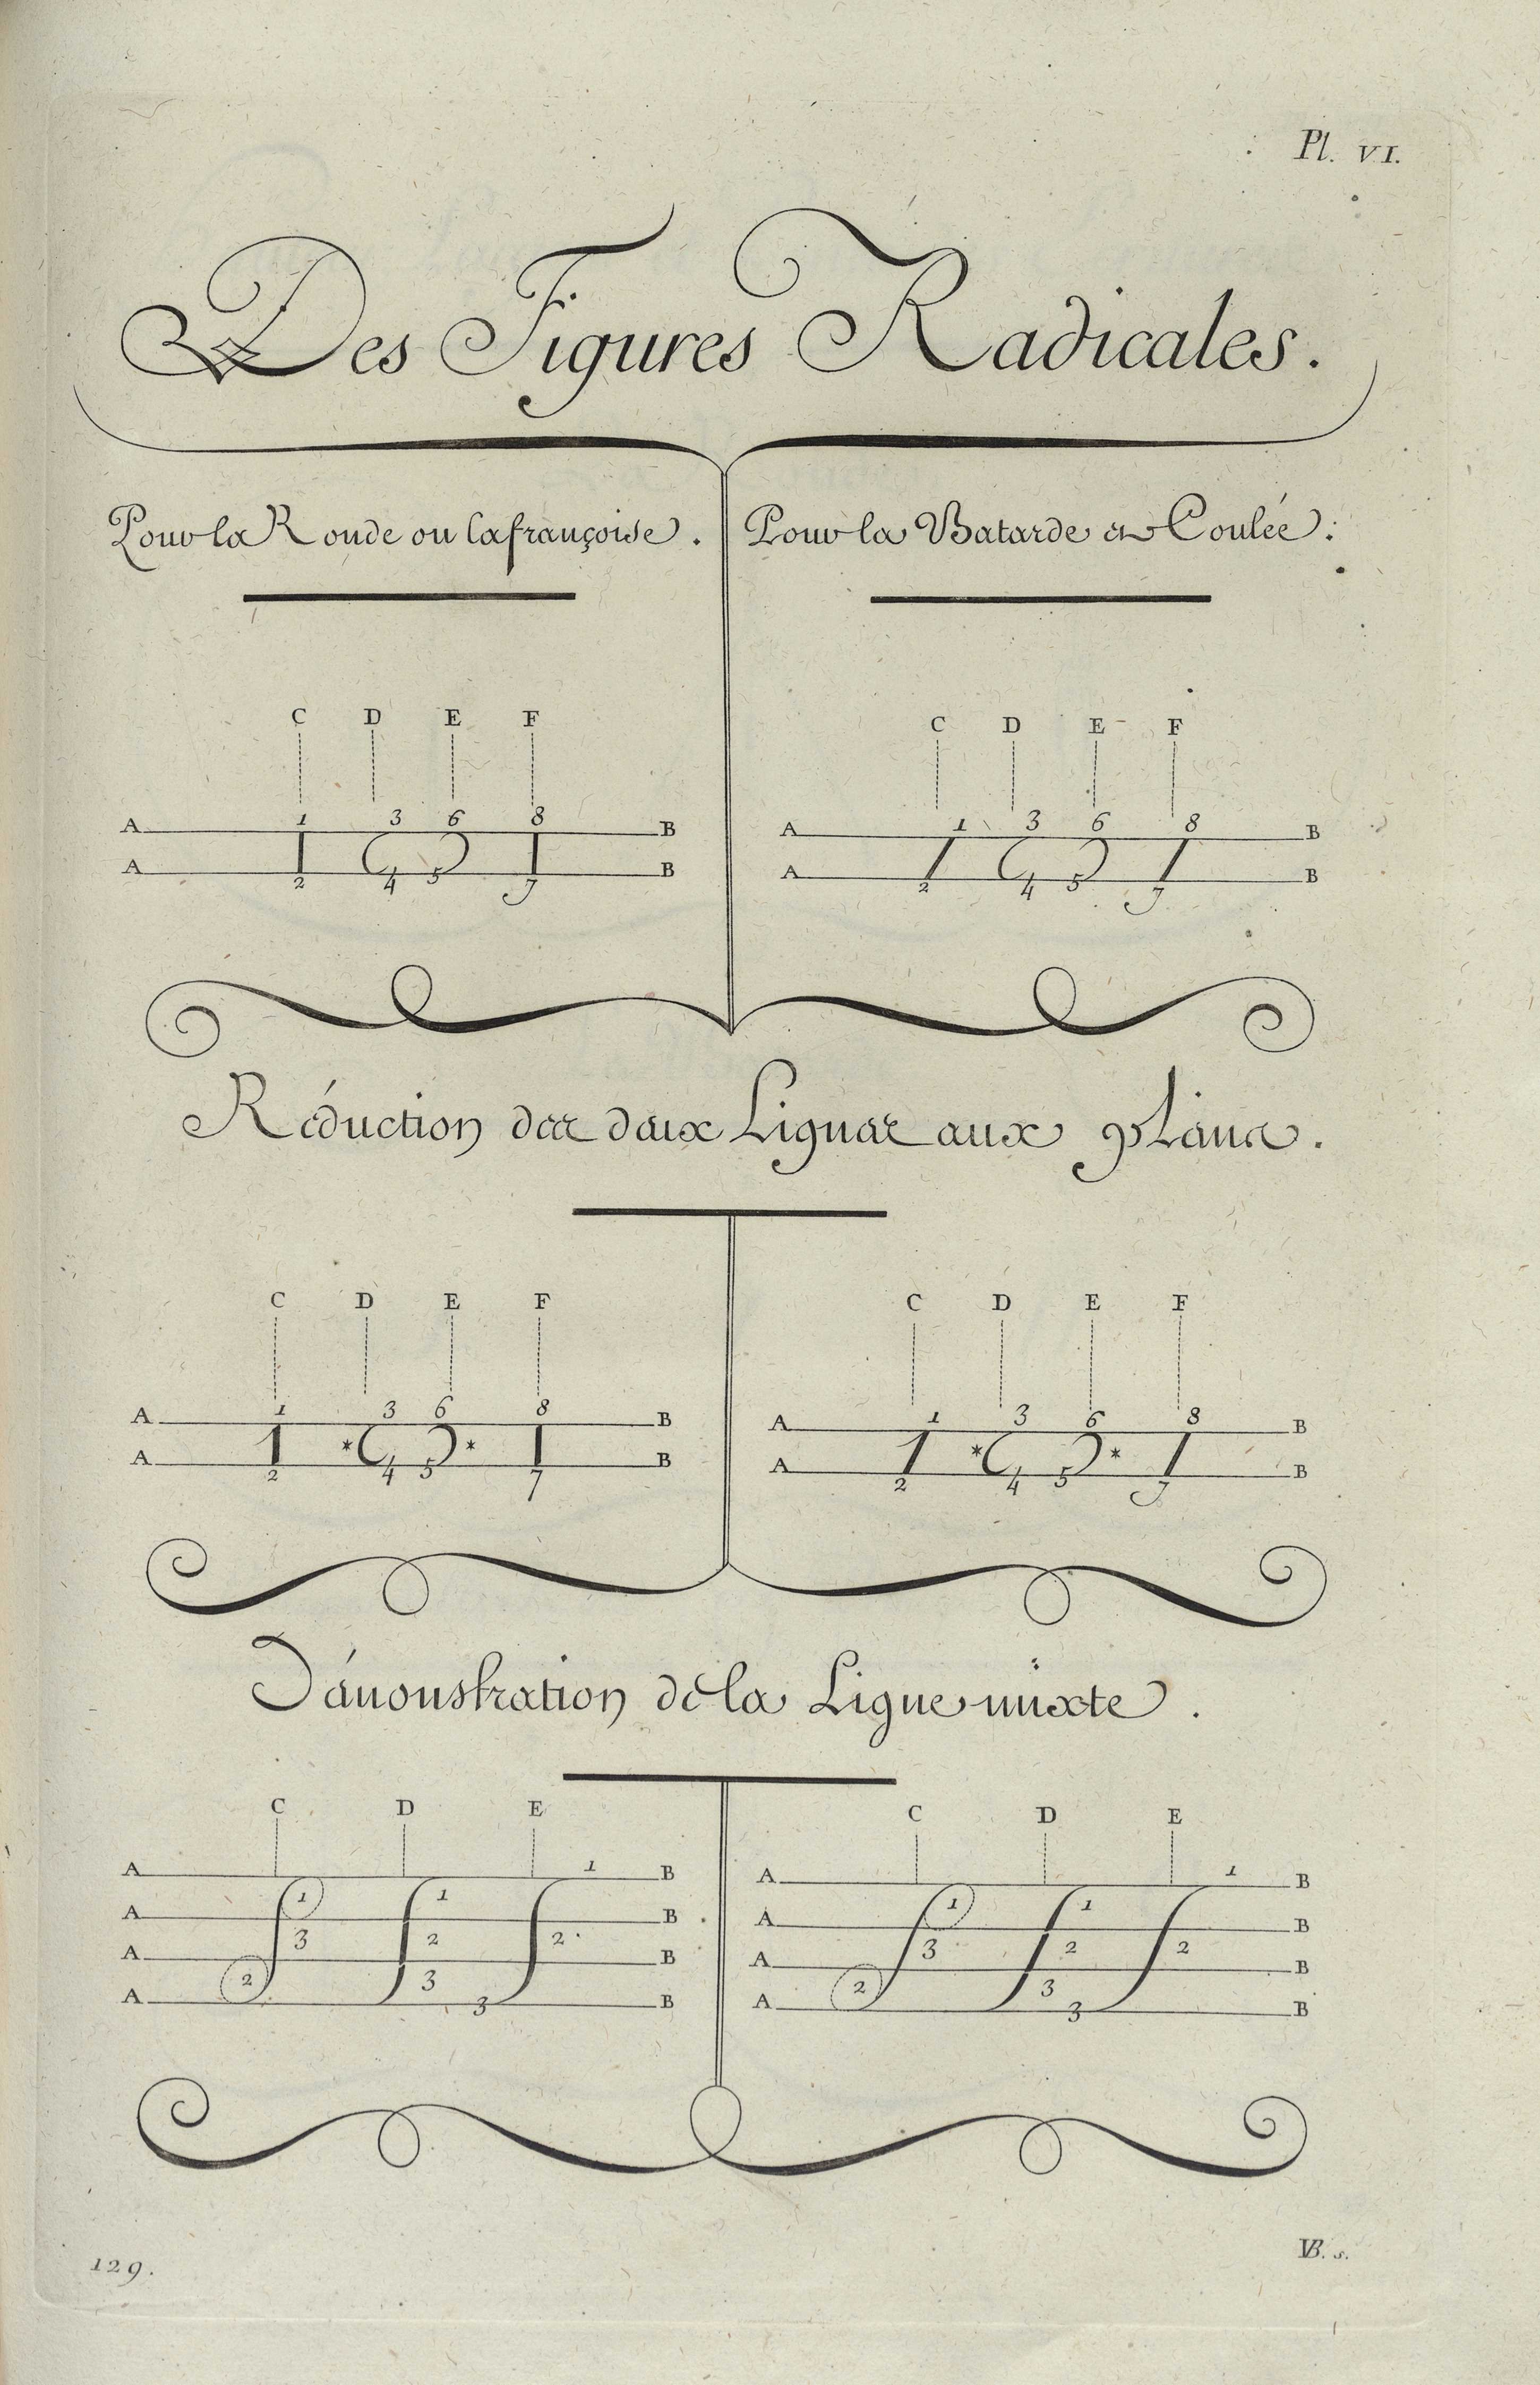 Pl. VI.
Des Figures Radicales.
Pour la Ronde ou la françoise.
Pour la Batarde et Coulée.
C D E F
A 1 3 6 8 B
A 2 4 5 7 B
C D E F
A 1 3 6 8 B
A 2 4 5 7 B
Réduction des deux Lignes aux pleins.
C D E F
A 1 3 6 8 B
A * * B
2 4 5 7
C D E F
A 1 3 6 8 B
A * * B
2 4 5 7
Démonstration de la Ligne mixte.
C D E
A 1 B
A 1 1 B
3 2 2
A B
2 3
A 3 B
C D E
A 1 B
A 1 1 B
3 2 2
A B
2 3
A 3 B
129.
VB. s.